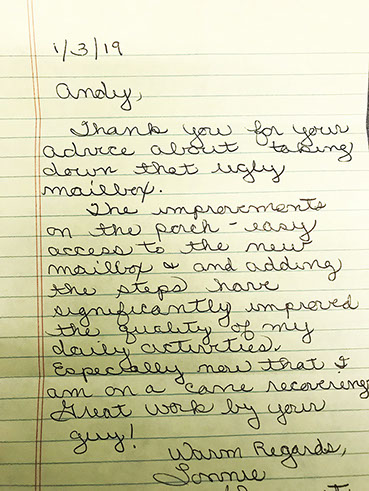 1/3/19
Andy,
Thank you for your
advice about taking
down that ugly
mailbox.
The improvements
on the porch - easy
access to the new
mailbox & and adding
the steps have
significantly improved
the quality of my
daily activities.
Especially now that I
am on a cane recovering
Great work by your
guy!
Warm Regards,
Lonnie